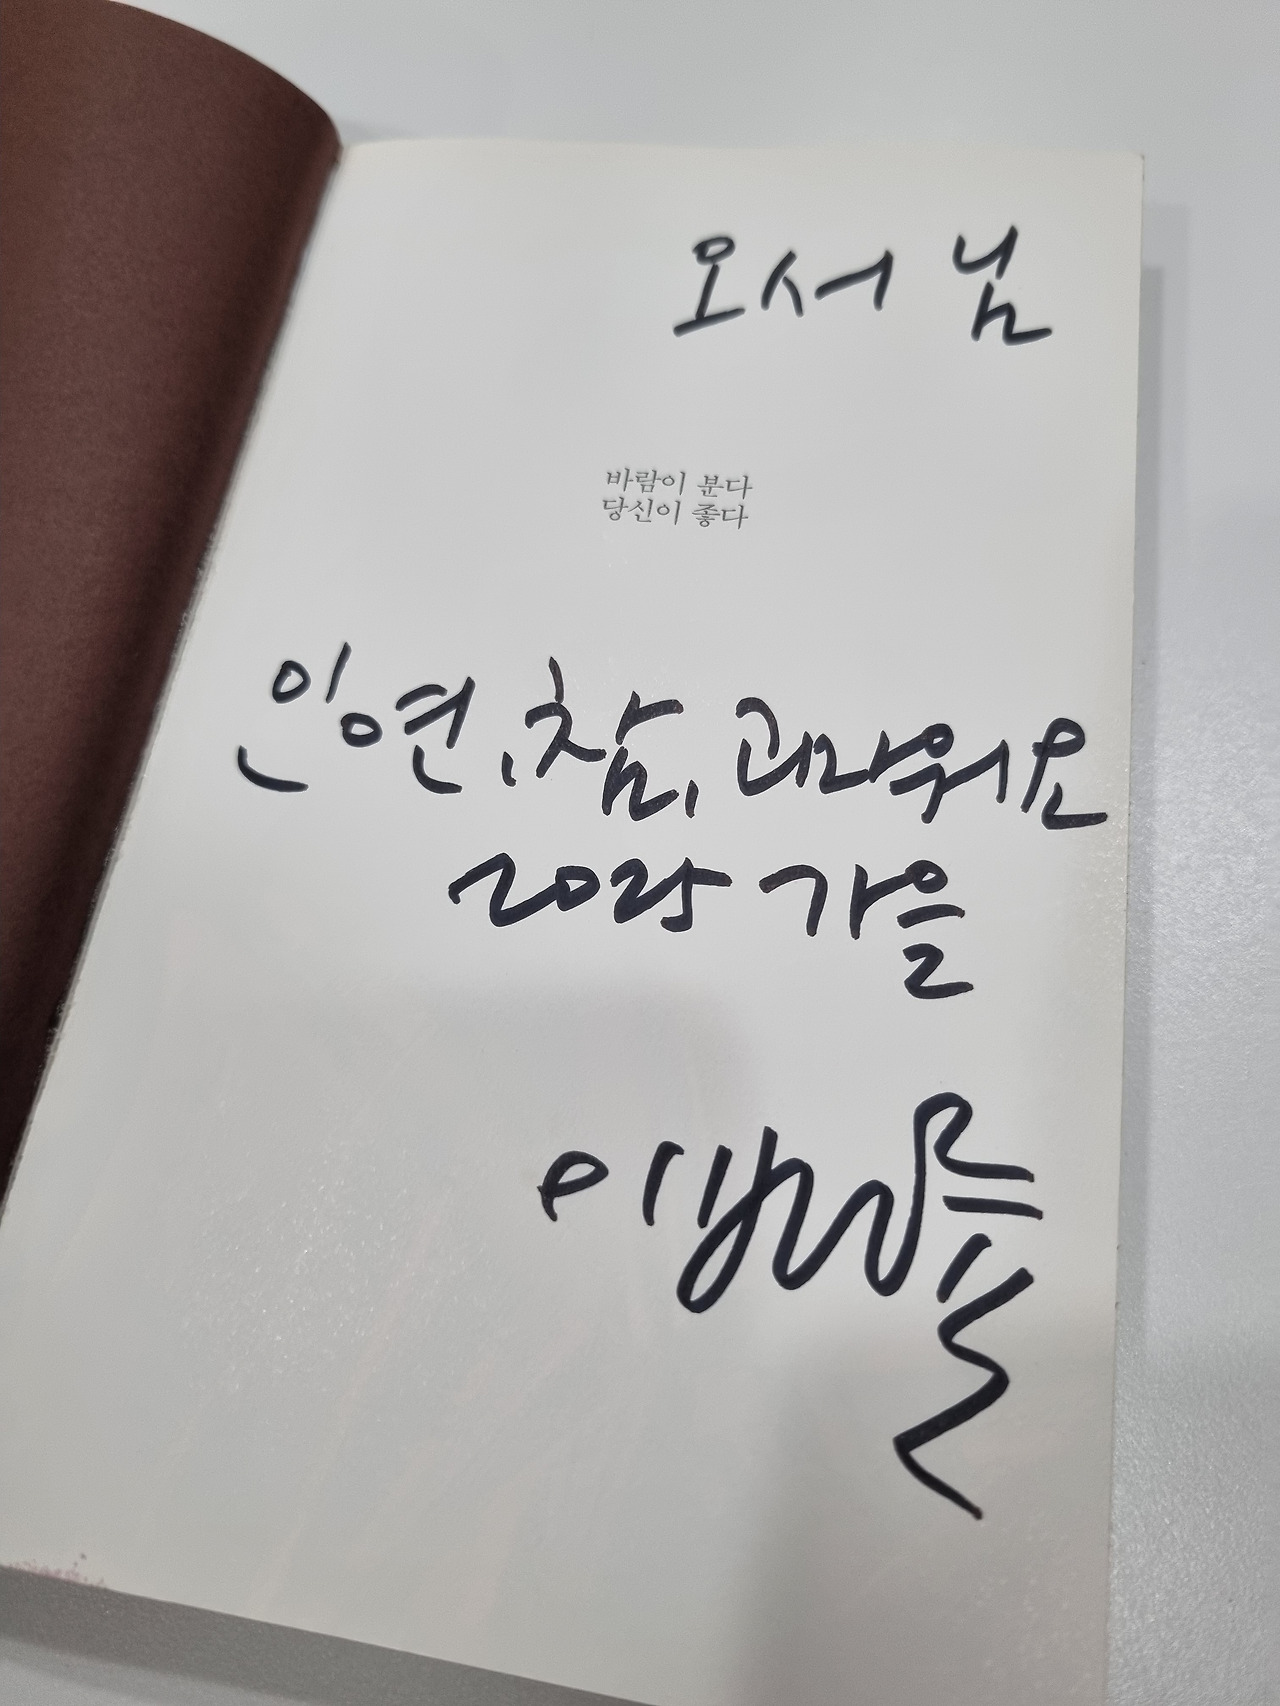 오서 님
바람이 분다
당신이 좋다
인연, 참, 고마워요
2025 가을
이병률